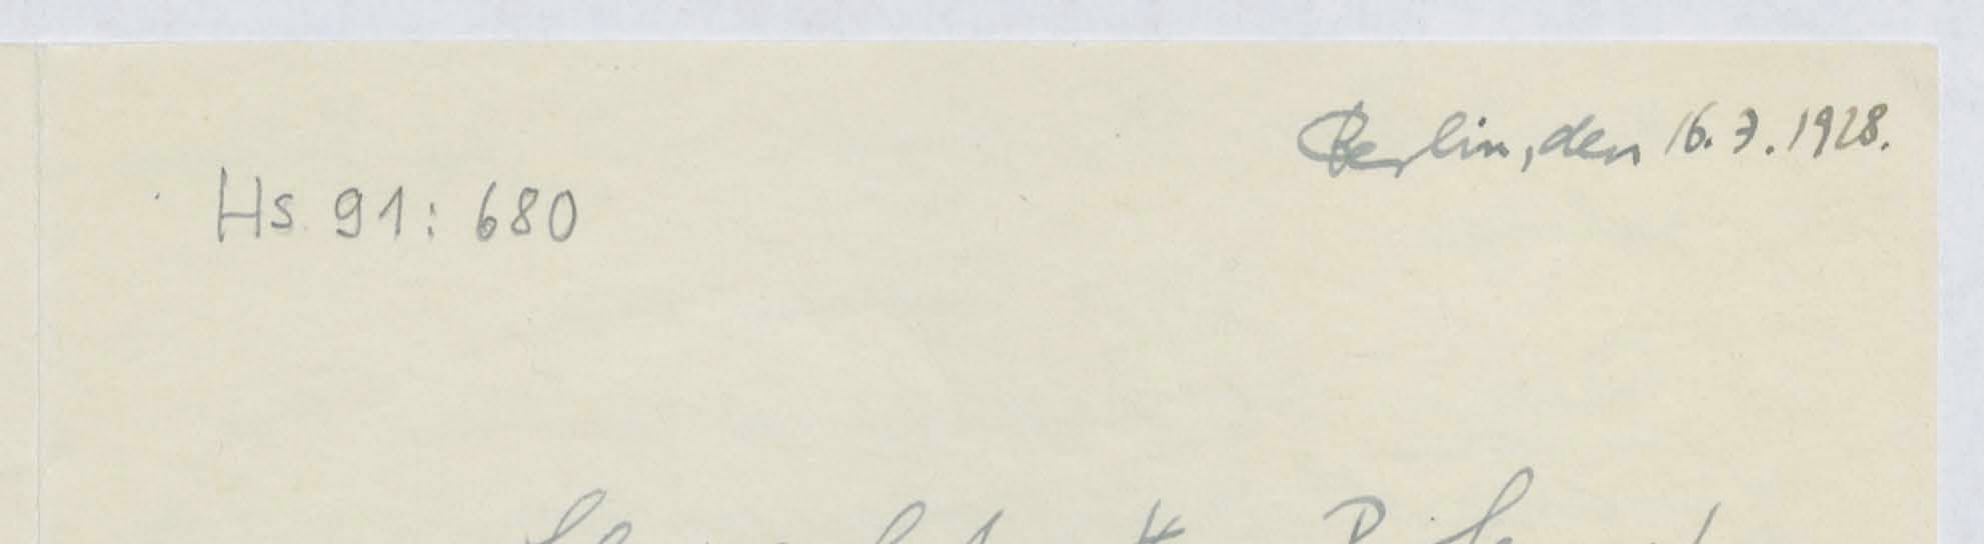 Berlin, den 16. 7. 1928.
Hs 91: 680